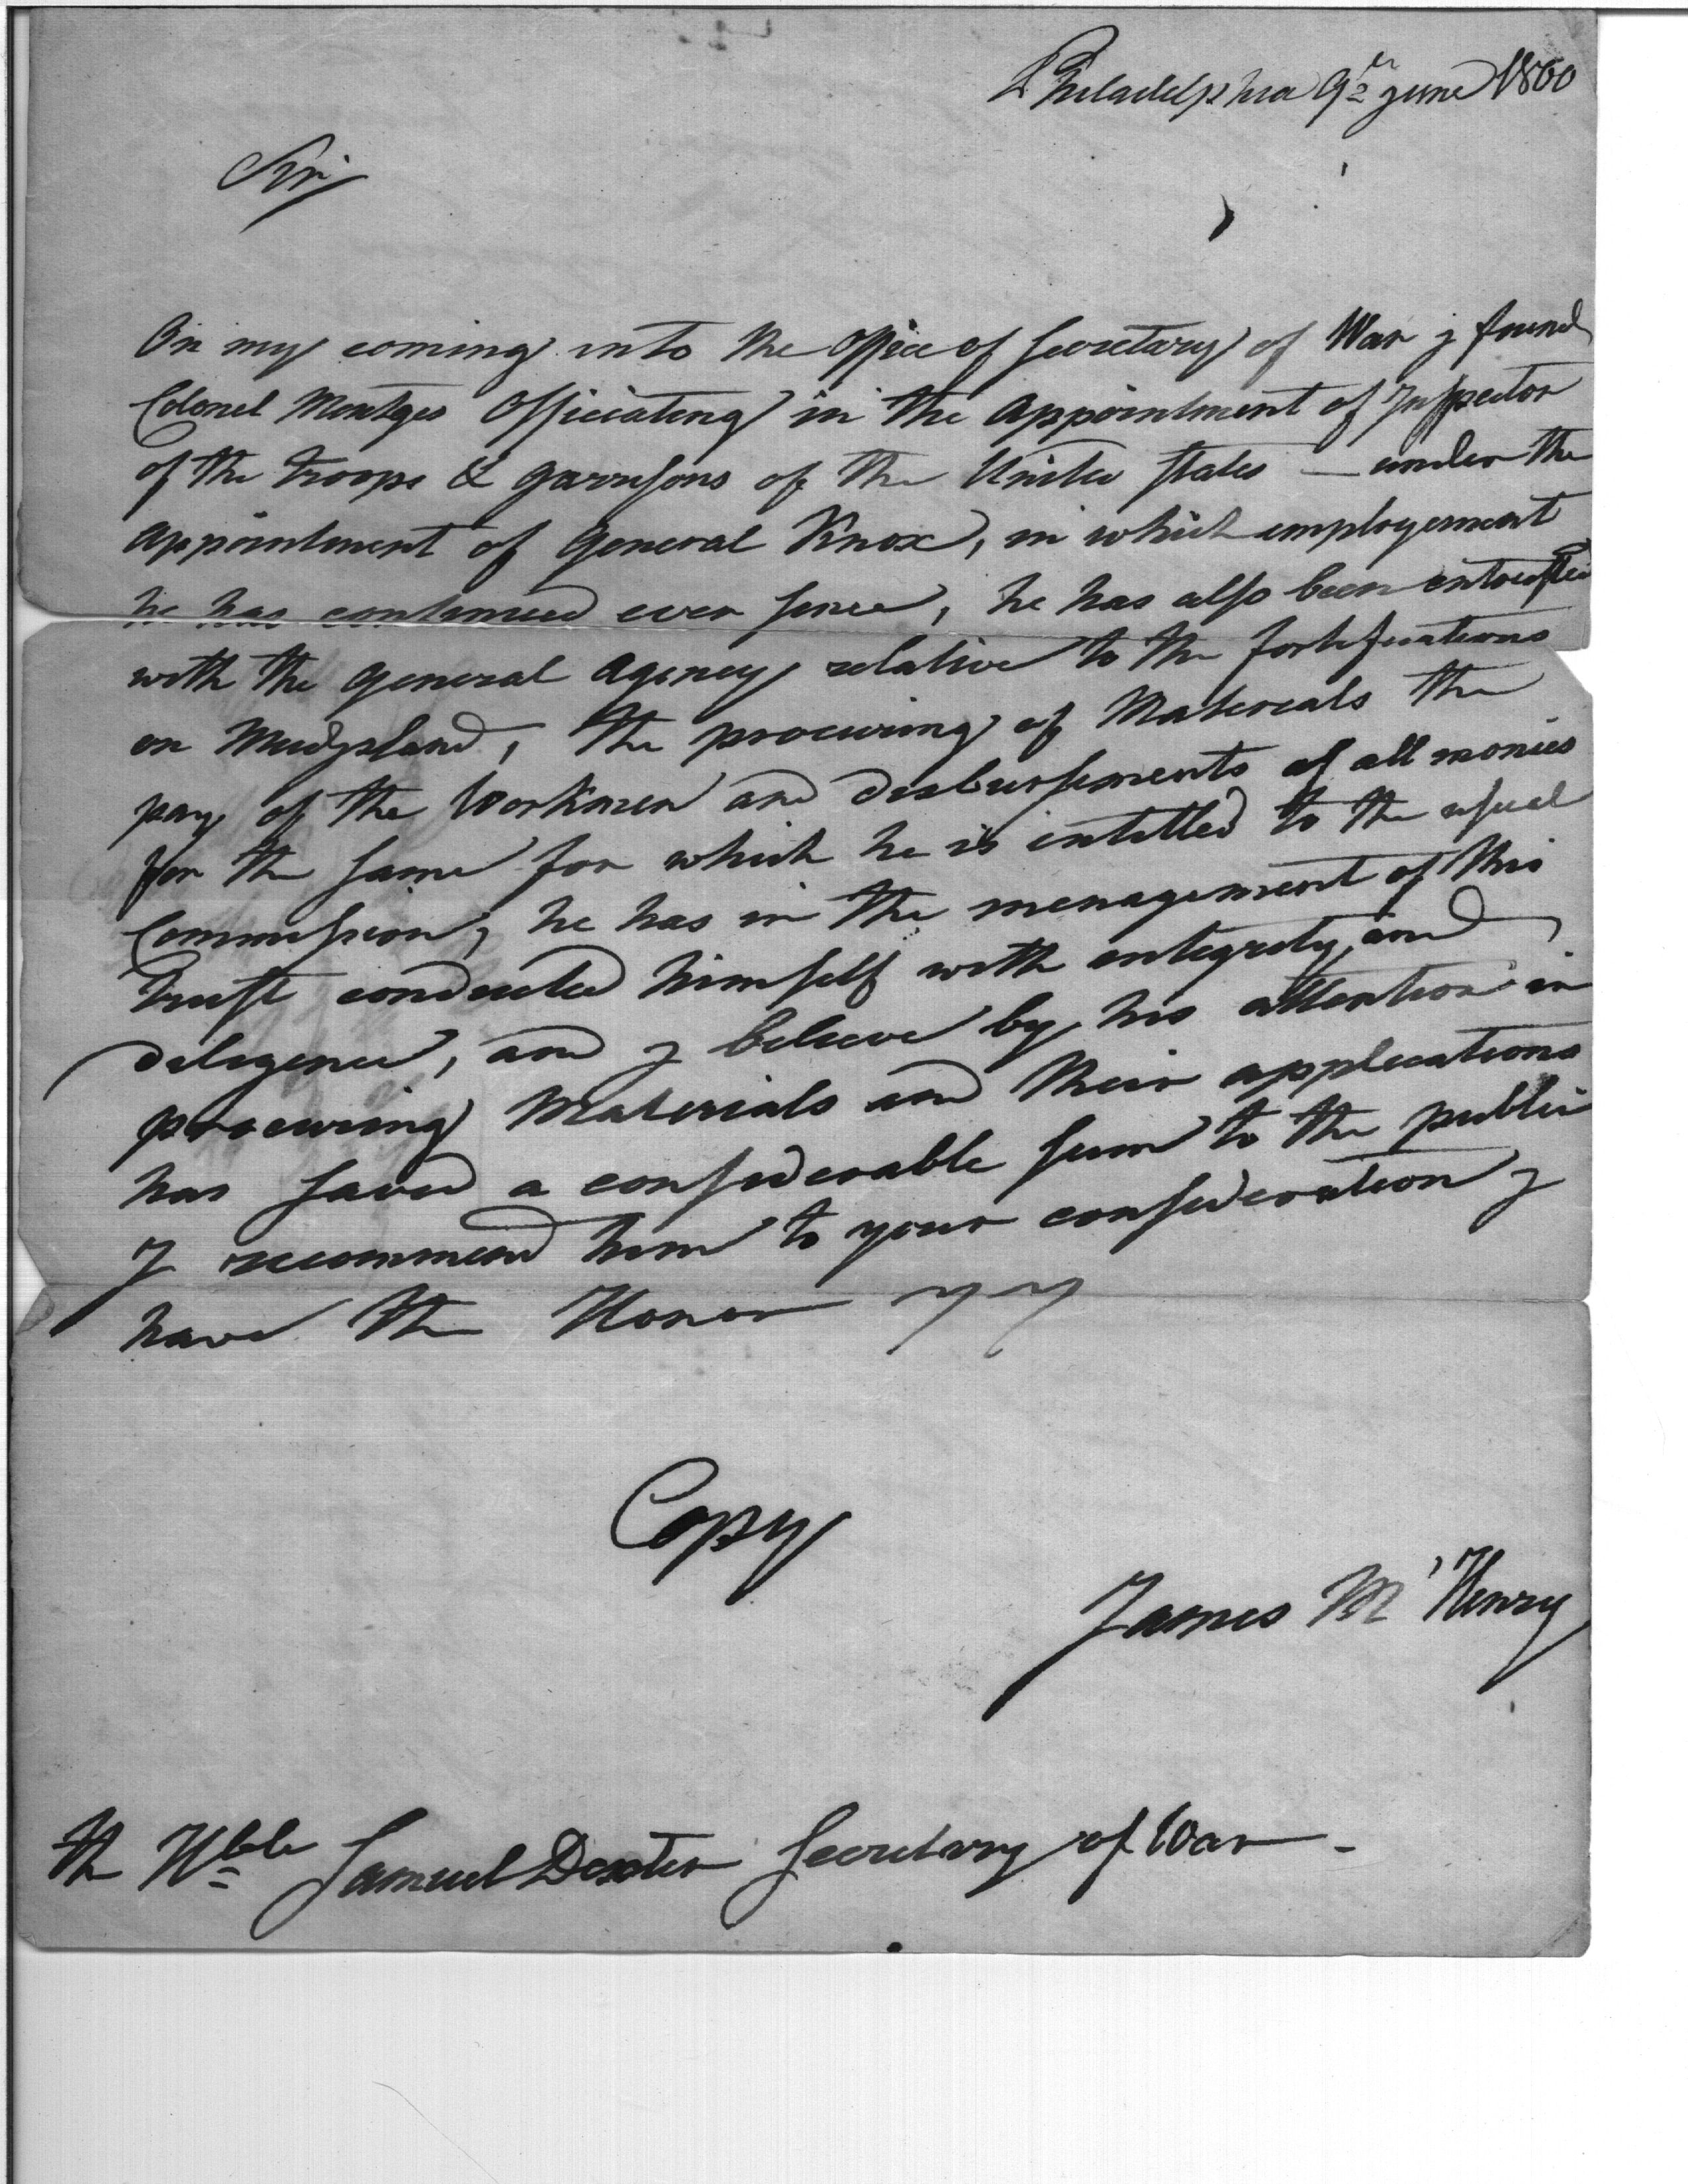 Philadelphia 9th june 1800
Sir
On my coming into the Office of Secretary of War j found
Colonel Mentges Officiating in the appointment of Inspector
of the troops & garrisons of the United States — under the
appointment of General Knox, in which employement
he has continued ever since, he has also been entrusted
with the general Agency relative to the fortifications
on Mudjsland, the procuring of Materials the
pay of the Workmen and disbursements of all monies
for the same for which he is intitled to the usual
Commission, he has in the menagement of this
trust conducted himself with integrity, and
diligence, and j believe by his attention in
procuring Materials and their applications
has saved a considerable sum to the public
J recommend him to your consideration j
have the Honor
Copy
James M'Henry
the Hble Samuel Dexter Secretary of War -